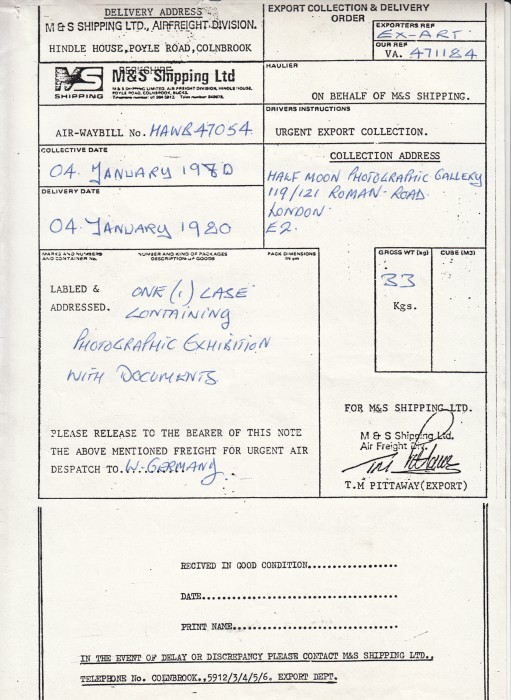 DELIVERY ADDRESS
M & S SHIPPING LTD., AIRFREIGHT DIVISION.
HINDLE HOUSE, POYLE ROAD, COLNBROOK
BERKSHIRE
EXPORT COLLECTION & DELIVERY
ORDER
EXPORTERS REF
EX-ART
OUR REF
VA. 471184
MS
SHIPPING
M&S Shipping Ltd
M & S SHIPPING LIMITED, AIR FREIGHT DIVISION, HINDLE HOUSE,
POYLE ROAD, COLNBROOK, BUCKS.
HAULIER
ON BEHALF OF M&S SHIPPING.
AIR-WAYBILL No. HAWB47054
DRIVERS INSTRUCTIONS
URGENT EXPORT COLLECTION.
COLLECTIVE DATE
04. JANUARY 1980
DELIVERY DATE
04. JANUARY 1980
COLLECTION ADDRESS
HALF MOON PHOTOGRAPHIC GALLERY
119/121 ROMAN ROAD.
LONDON.
E2.
MARKS AND NUMBERS
AND CONTAINER No.
NUMBER AND KIND OF PACKAGES
DESCRIPTION OF GOODS
PACK DIMENSIONS
GROSS WT (kg)
CUBE (M3)
LABLED &
ADDRESSED.
ONE (1) CASE
CONTAINING
PHOTOGRAPHIC EXHIBITION
WITH DOCUMENTS
33
Kgs.
PLEASE RELEASE TO THE BEARER OF THIS NOTE
THE ABOVE MENTIONED FREIGHT FOR URGENT AIR
DESPATCH TO. W. GERMANY
FOR M&S SHIPPING LTD.
M & S Shipping Ltd.
Air Freight Div.
T.M PITTAWAY(EXPORT)
RECIVED IN GOOD CONDITION..................
DATE.......................................
PRINT NAME.................................
IN THE EVENT OF DELAY OR DISCREPANCY PLEASE CONTACT M&S SHIPPING LTD.,
TELEPHONE No. COLNBROOK.,5912/3/4/5/6. EXPORT DEPT.